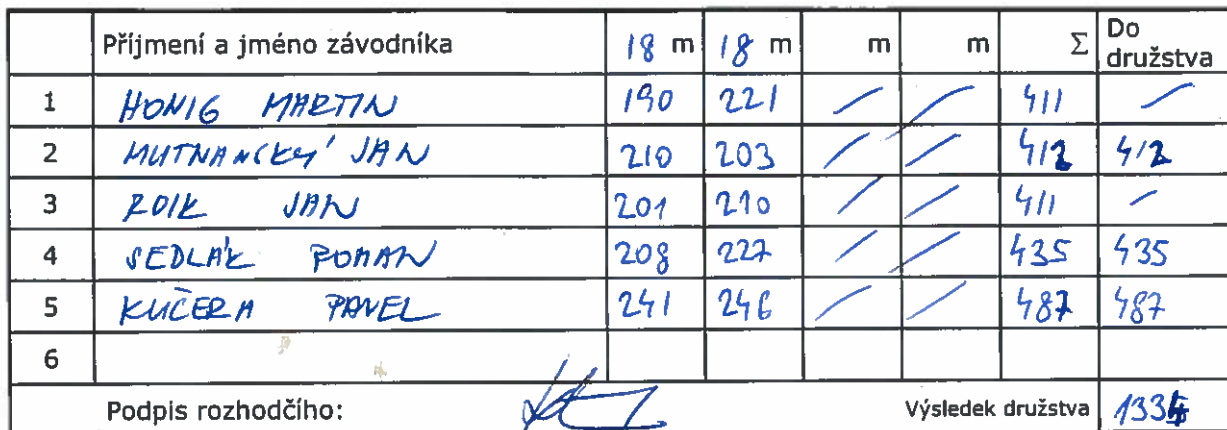 Příjmení a jméno závodníka 18 m 18 m m m Σ Do družstva
1 HONIG MARTIN 190 221 / / 411 /
2 MUTNANSKÝ JAN 210 203 / / 412 412
3 ROIK JAN 201 210 / / 411 /
4 SEDLÁK ROMAN 208 227 / / 435 435
5 KUČERA PAVEL 241 246 / / 487 487
6
Podpis rozhodčího: Výsledek družstva 1334